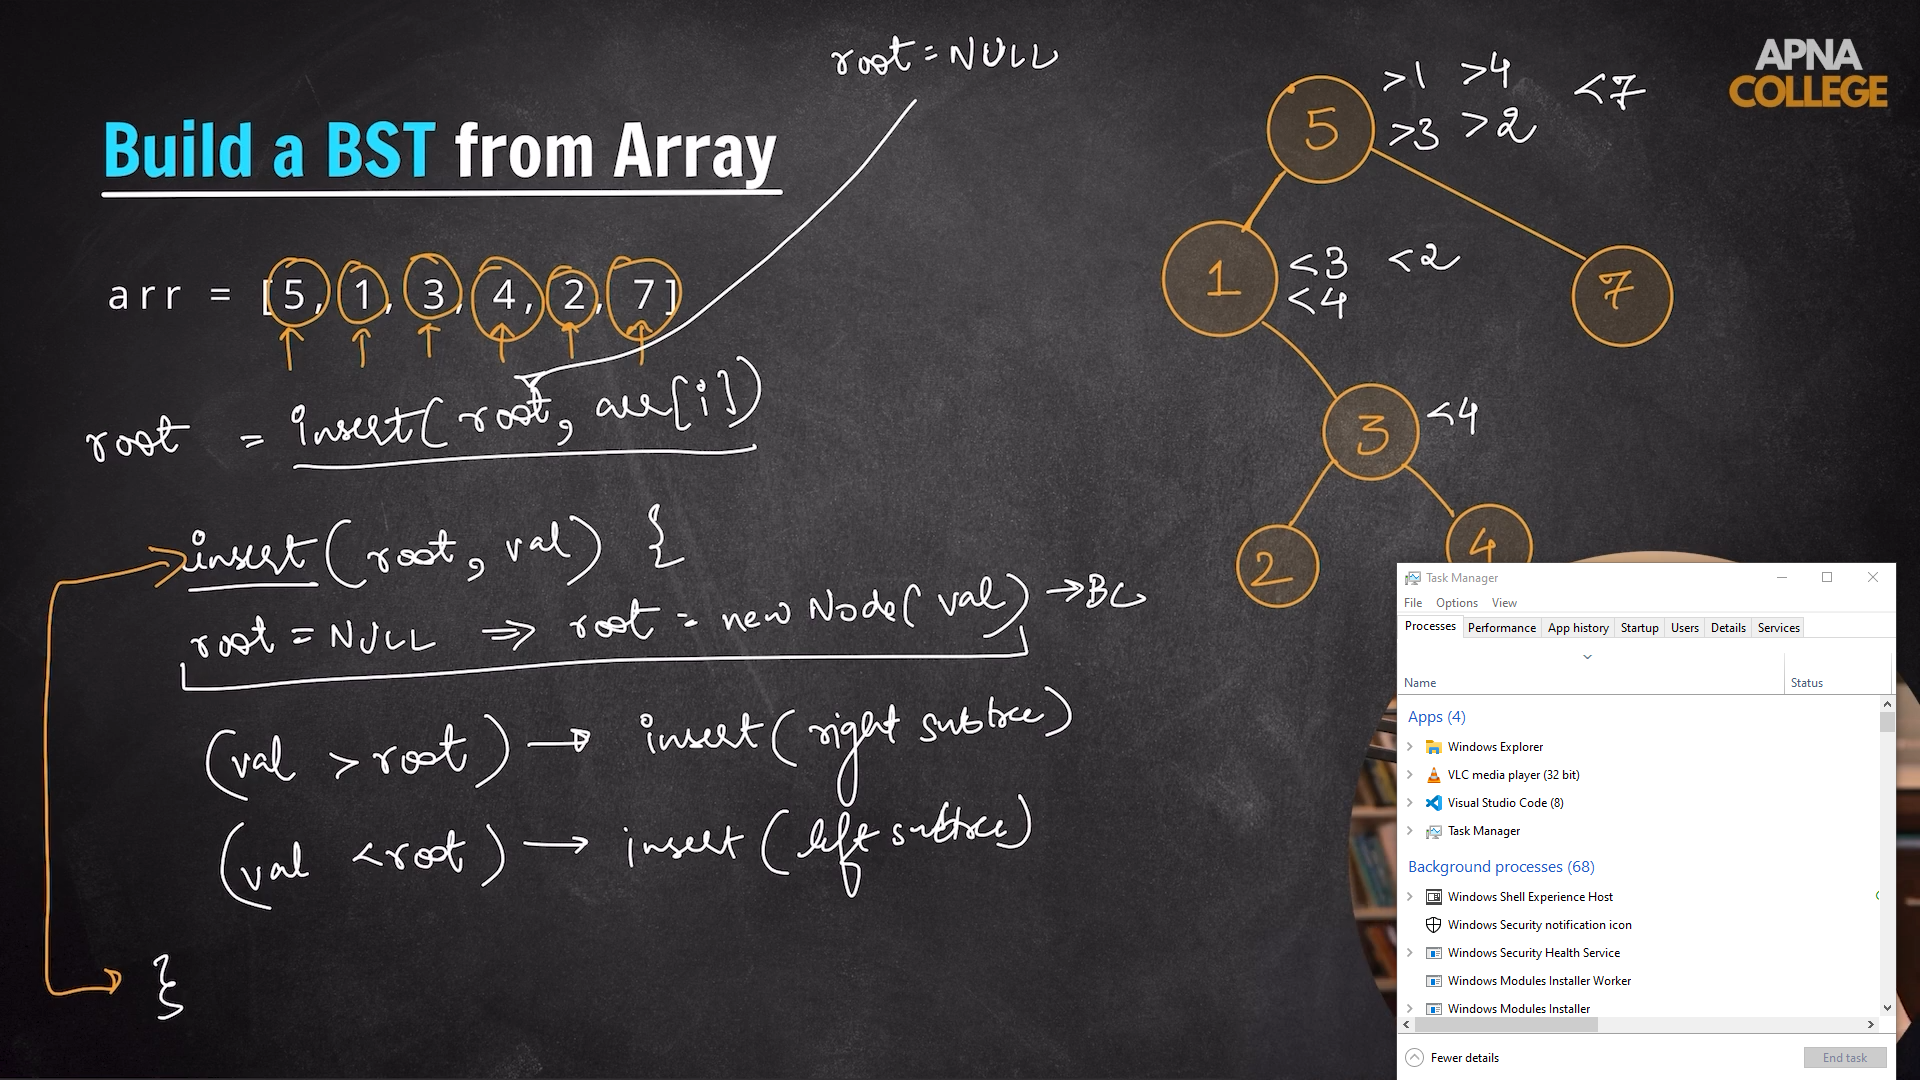 root = NULL
APNA
COLLEGE
Build a BST from Array
arr = [5, 1, 3, 4, 2, 7]
root = insert(root, arr[i])
insert(root, val) {
root = NULL ⇒ root = new Node(val) → BC
(val > root) → insert(right subtree)
(val < root) → insert(left subtree)
}
5
>1 >4 <7
>3 >2
1
<3 <2
<4
7
3
<4
2
4
Task Manager
File Options View
Processes Performance App history Startup Users Details Services
Name Status
Apps (4)
Windows Explorer
VLC media player (32 bit)
Visual Studio Code (8)
Task Manager
Background processes (68)
Windows Shell Experience Host
Windows Security notification icon
Windows Security Health Service
Windows Modules Installer Worker
Windows Modules Installer
Fewer details End task